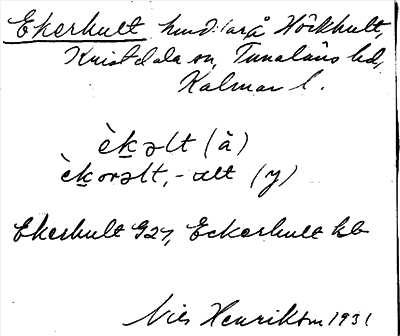 Ekerhult hmd: lar å Höckhult,
Kristdala sn, Tunaläns hd,
Kalmar l.
èk̠əlt (ä)
èk̠orəlt, -ælt (y)
Ekerhult G27, Eckerhult kb
Nils Henrikson 1931